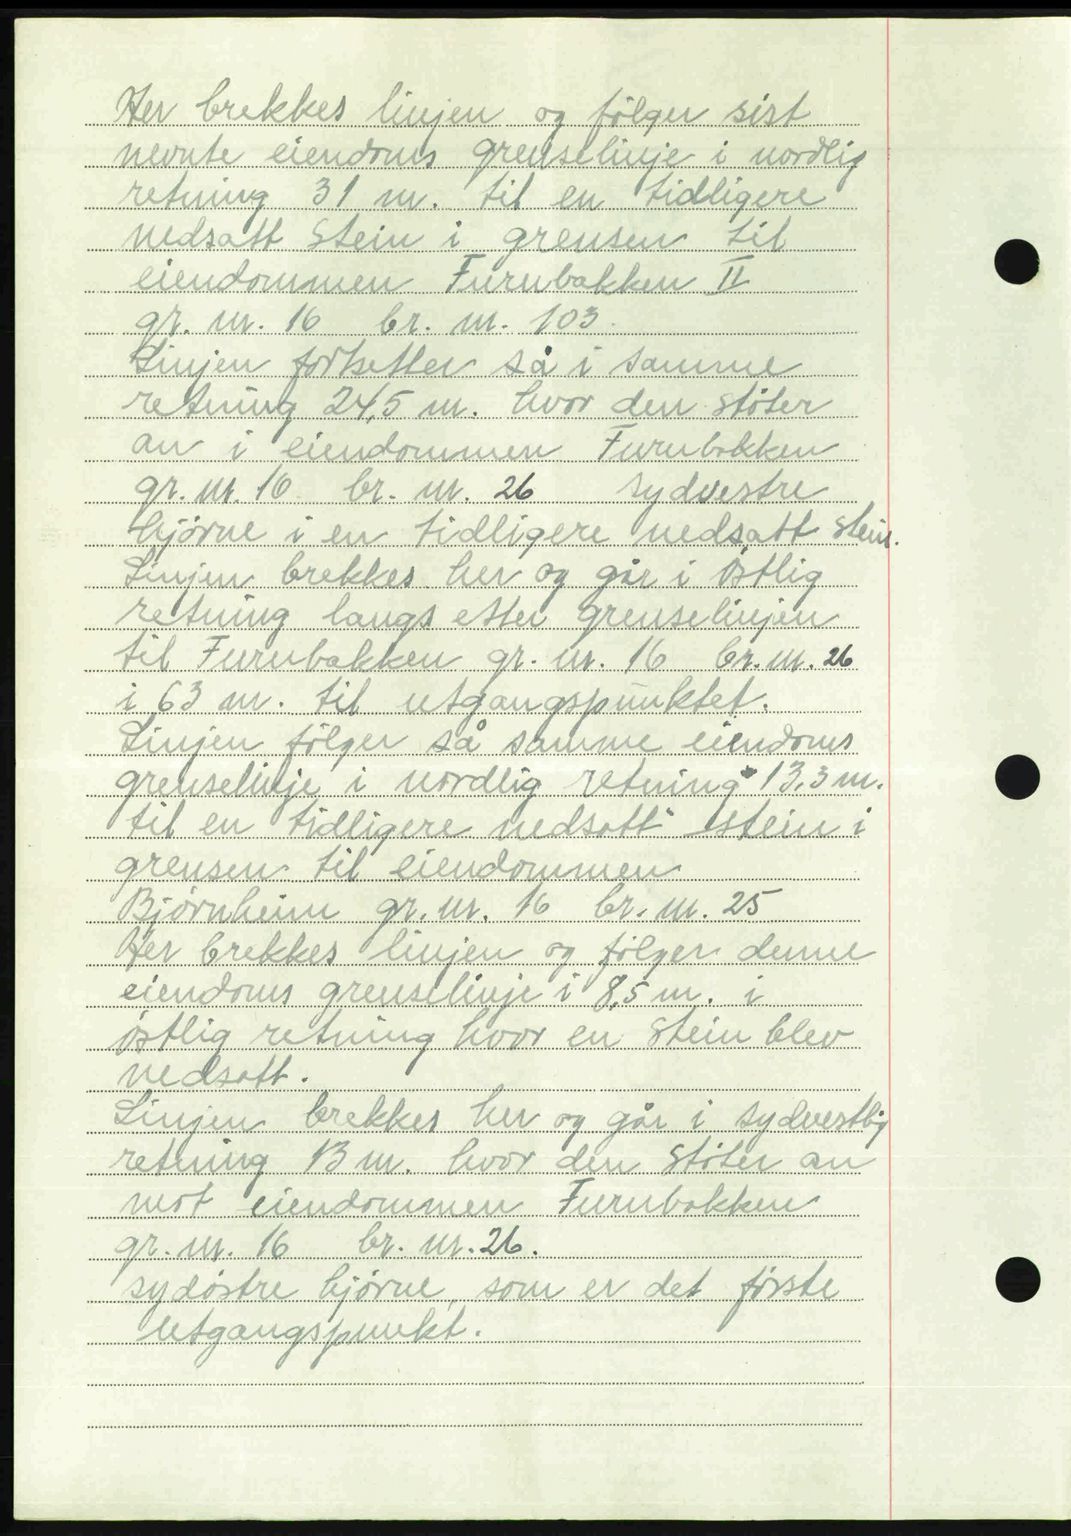 Her brekkes linjen og følger sist
nevnte eiendoms grenselinje i nordlig
retning 31 m. til en tidligere
nedsatt stein i grensen til
eiendommen Furubakken II
gr. nr. 16 br. nr. 103.
Linjen fortsetter så i samme
retning 24,5 m. hvor den støter
an i eiendommen Furubakken
gr. nr. 16 br. nr. 26 sydvestre
hjørne i en tidligere nedsatt stein.
Linjen brekkes her og går i østlig
retning langs etter grenselinjen
til Furubakken gr. nr. 16 br. nr. 26
i 63 m. til utgangspunktet.
Linjen følger så samme eiendoms
grenselinje i nordlig retning 13,3 m.
til en tidligere nedsatt stein i
grensen til eiendommen
Bjørnheim gr. nr. 16 br. nr. 25
Her brekkes linjen og følger denne
eiendoms grenselinje i 8,5 m. i
østlig retning hvor en stein blev
nedsatt.
Linjen brekkes her og går i sydvestlig
retning 13 m. hvor den støter an
mot eiendommen Furubakken
gr. nr. 16 br. nr. 26.
sydøstre hjørne, som er det første
utgangspunkt.